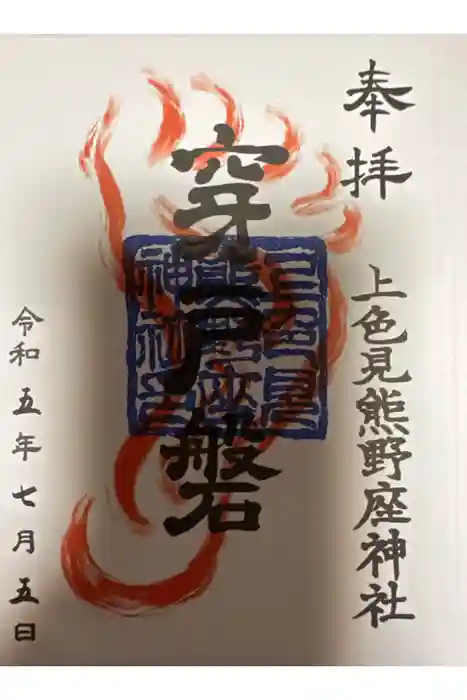 奉拝
上色見熊野座神社
穿戸磐
上色見
熊野座
神社之
令和五年七月五日